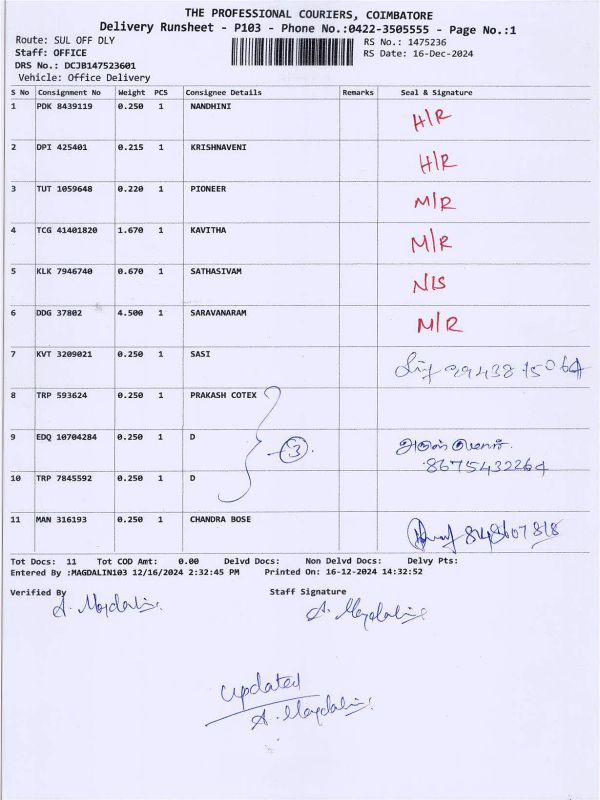 THE PROFESSIONAL COURIERS, COIMBATORE
Delivery Runsheet - P103 - Phone No.:0422-3505555 - Page No.:1
Route: SUL OFF DLY
RS No.: 1475236
Staff: OFFICE
RS Date: 16-Dec-2024
DRS No.: DCJB147523601
Vehicle: Office Delivery
S No Consignment No Weight PCS Consignee Details Remarks Seal & Signature
1 PDK 8439119 0.250 1 NANDHINI H/R
2 DPI 425401 0.215 1 KRISHNAVENI H/R
3 TUT 1059648 0.220 1 PIONEER M/R
4 TCG 41401820 1.670 1 KAVITHA M/R
5 KLK 7946740 0.670 1 SATHASIVAM N/S
6 DDG 37802 4.500 1 SARAVANARAM M/R
7 KVT 3209021 0.250 1 SASI
8 TRP 593624 0.250 1 PRAKASH COTEX
9 EDQ 10704284 0.250 1 D 3
8675432264
10 TRP 7845592 0.250 1 D
11 MAN 316193 0.250 1 CHANDRA BOSE
Tot Docs: 11 Tot COD Amt: 0.00 Delvd Docs: Non Delvd Docs: Delvy Pts:
Entered By :MAGDALIN103 12/16/2024 2:32:45 PM Printed On: 16-12-2024 14:32:52
Verified By Staff Signature
A. Magdalin A. Magdalin
updated
A. Magdalin